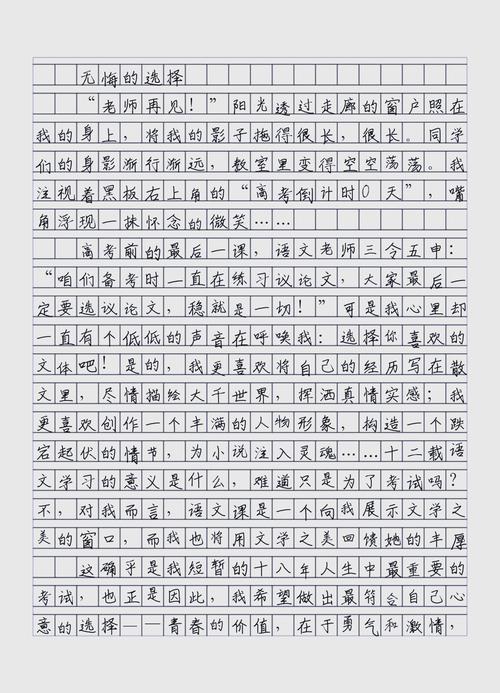 无悔的选择
“老师再见！”阳光透过走廊的窗户照在
我的身上，将我的影子拖得很长，很长。同学
们的身影渐行渐远，教室里变得空空荡荡。我
注视着黑板右上角的“高考倒计时0天”，嘴
角浮现一抹怀念的微笑……
高考前的最后一课，语文老师三令五申：
“咱们备考时一直在练习议论文，大家最后一
定要选议论文，稳就是一切！”可是我心里却
一直有个低低的声音在呼唤我：选择你喜欢的
文体吧！是的，我更喜欢将自己的经历写在散
文里，尽情描绘大千世界，挥洒真情实感；我
更喜欢创作一个丰满的人物形象，构造一个跌
宕起伏的情节，为小说注入灵魂……十二载语
文学习的意义是什么，难道只是为了考试吗？
不，对我而言，语文课是一个向我展示文学之
美的窗口，而我也将用文学之美回馈她的丰厚
这确乎是我短暂的十八年人生中最重要的
考试，也正是因此，我希望做出最符合自己心
意的选择——青春的价值，在于勇气和激情，